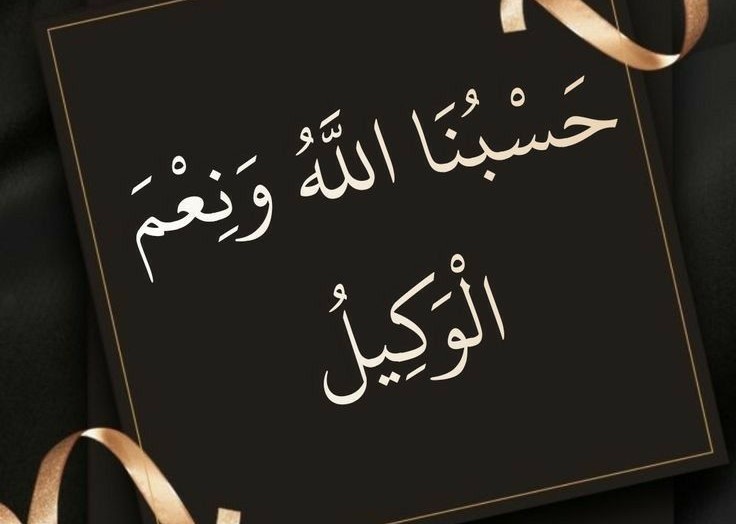 حَسْبُنَا اللَّهُ وَنِعْمَ
الْوَكِيلُ